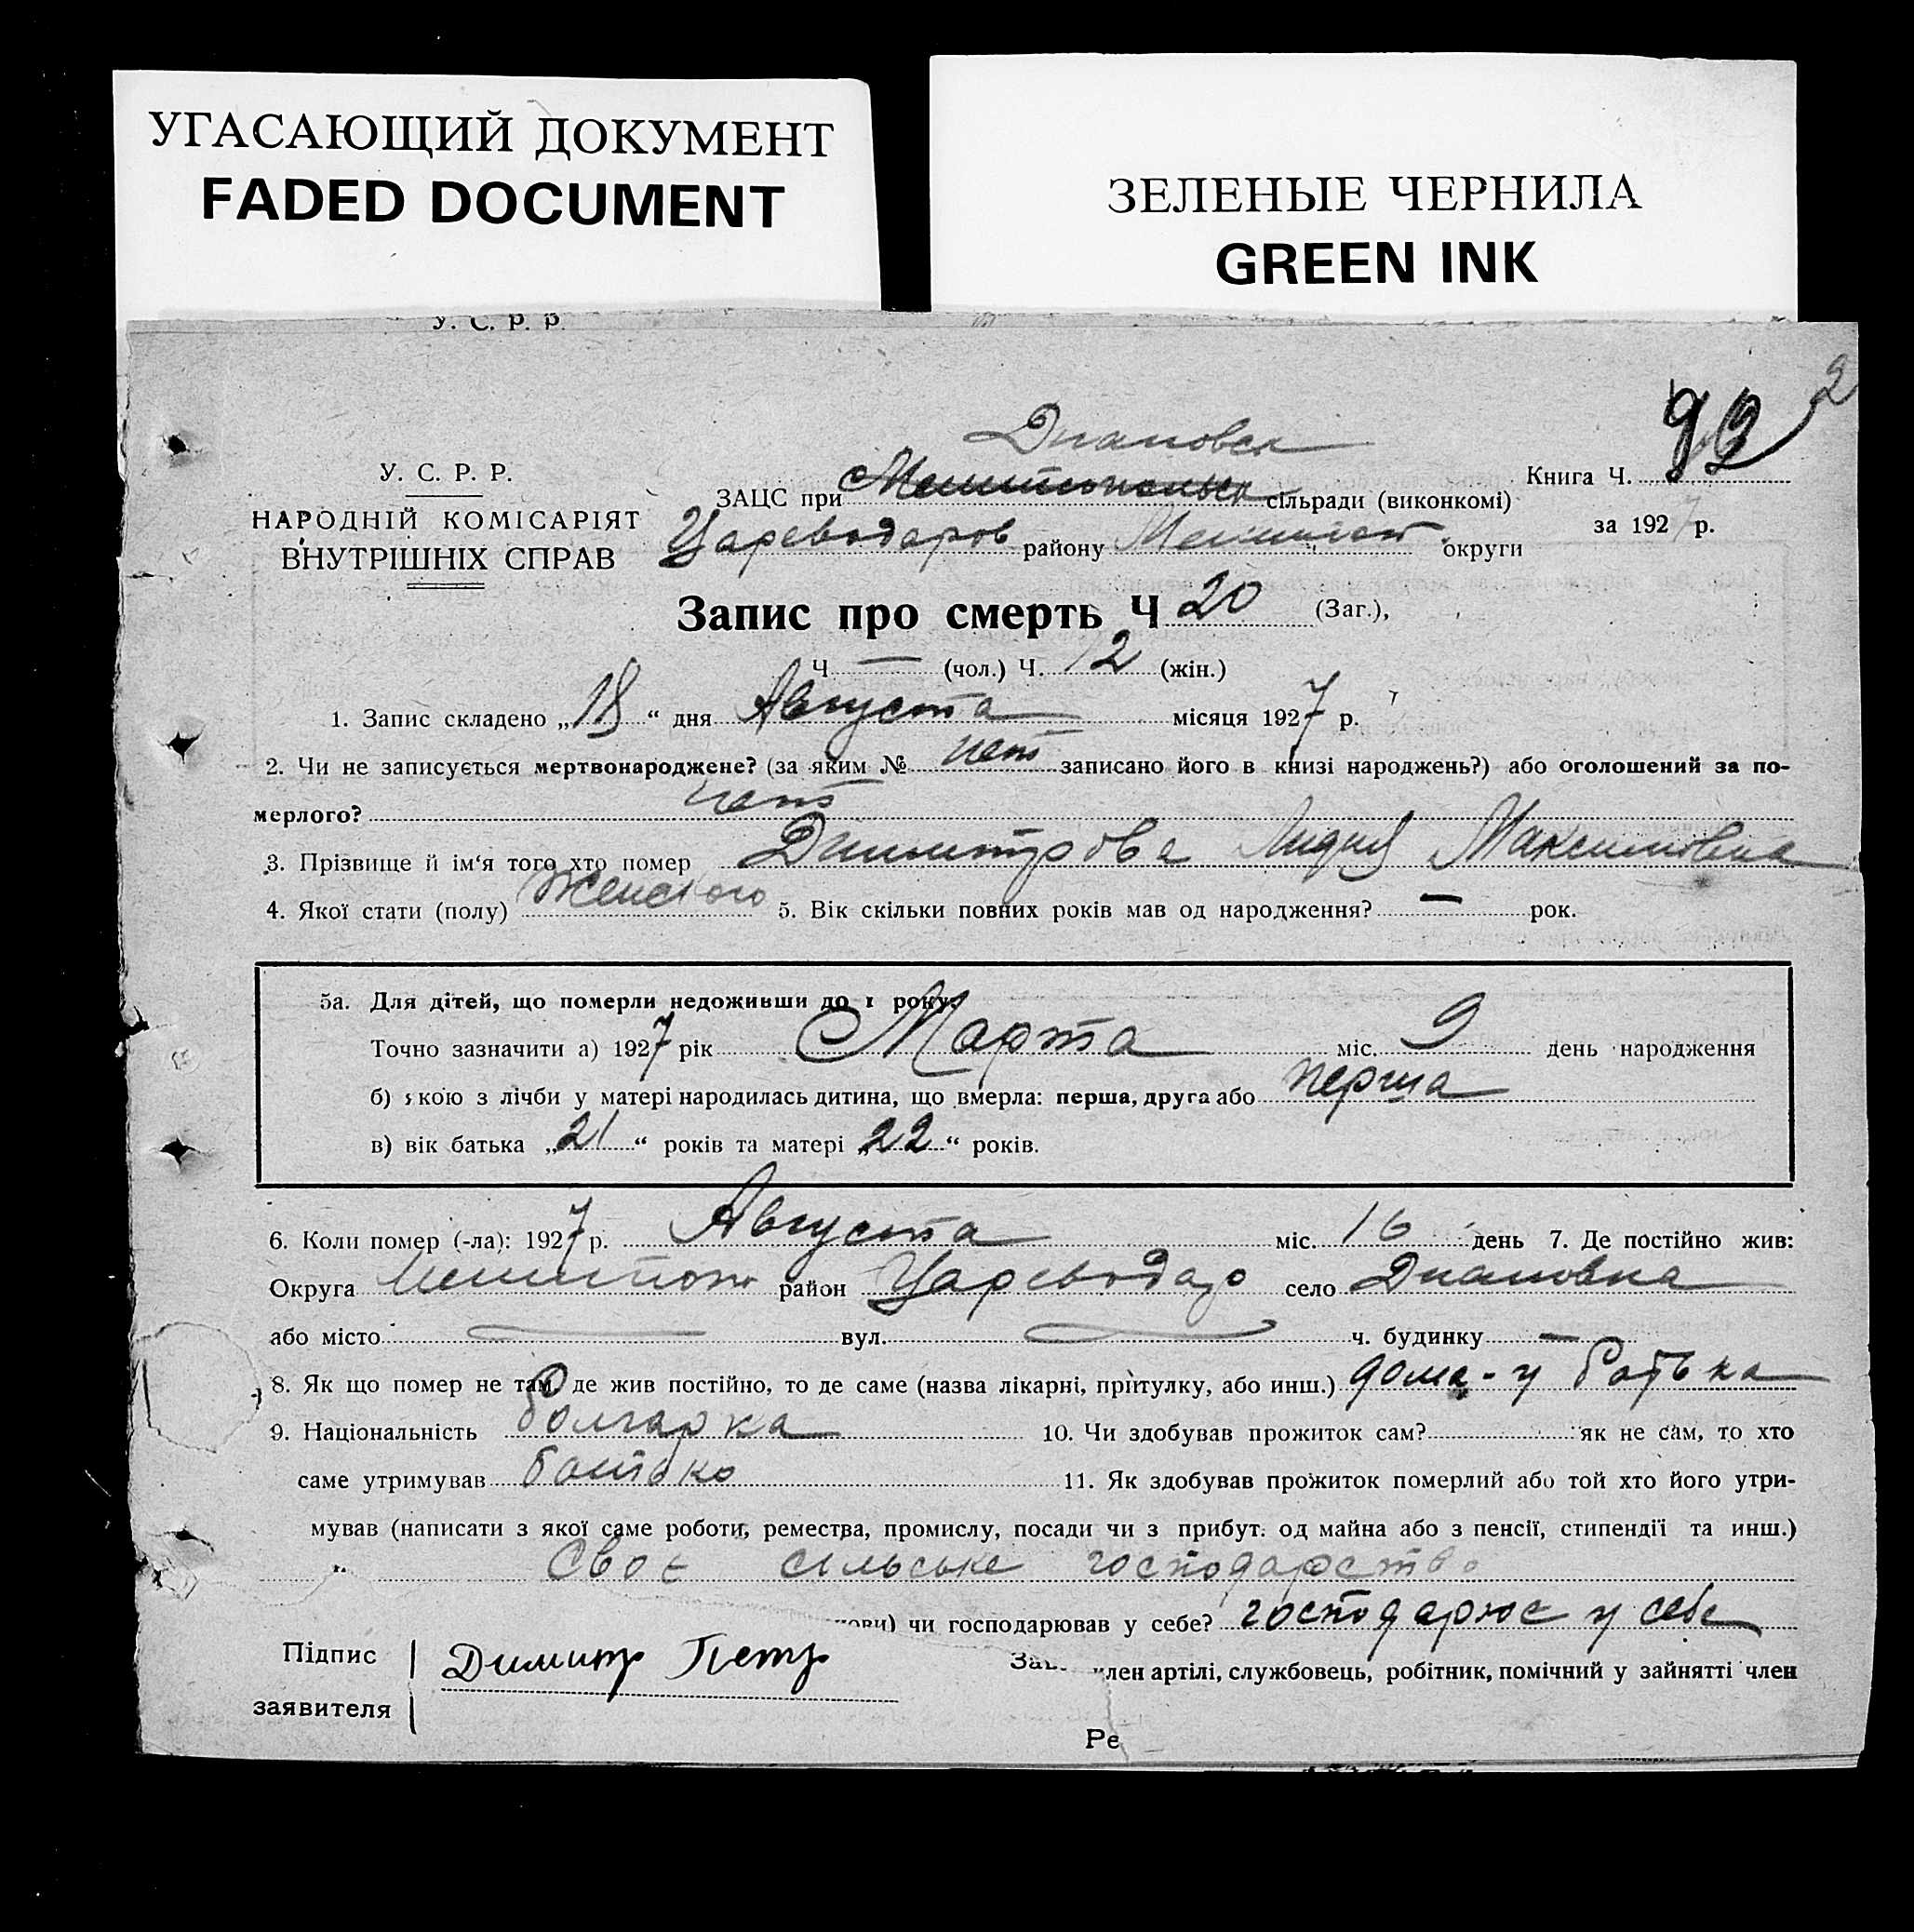 УГАСАЮЩИЙ ДОКУМЕНТ
FADED DOCUMENT
ЗЕЛЕНЫЕ ЧЕРНИЛА
GREEN INK
У. С. Р. Р.
2
У. С. Р. Р.
НАРОДНІЙ КОМІСАРІЯТ
ВНУТРІШНІХ СПРАВ
Диановск
ЗАЦС при Мелитопольск сільради (виконкомі)
Цареводаров району округи
Книга Ч.
за 1927 р.
Запис про смерть Ч 20 (Заг.),
Ч — (чол.) Ч. 12 (жін.)
1. Запис складено „18“ дня Августа місяця 1927 р.
2. Чи не записується мертвонароджене? (за яким № нет записано його в книзі народжень?) або оголошений за по-
мерлого? нет
3. Прізвище й ім‘я того хто помер Димитрова Лидия Максимовна
4. Якої стати (полу) Женского 5. Вік скільки повних років мав од народження? — рок.
5а. Для дітей, що померли недоживши до 1 року:
Точно зазначити а) 1927 рік Марта міс. 9 день народження
б) якою з лічби у матері народилась дитина, що вмерла: перша, друга або перша
в) вік батька „21“ років та матері „22“ років.
6. Коли помер (-ла): 1927 р. Августа міс. 16 день 7. Де постійно жив:
Округа Мелитоп район Цареводар село Диановка
або місто — вул. — ч. будинку —
8. Як що помер не там, де жив постійно, то де саме (назва лікарні, прітулку, або инш.) дома - у батька
9. Національність болгарка 10. Чи здобував прожиток сам? як не сам, то хто
саме утримував батько 11. Як здобував прожиток померлий або той хто його утри-
мував (написати з якої саме роботи, ремества, промислу, посади чи з прибут. од майна або з пенсії, стипендії та инш.)
Своє сільське господарство
чи господарював у себе? господарює у себе
Підпис
заявителя
Димитр Петр
член артілі, службовець, робітник, помічний у зайнятті член
Ре